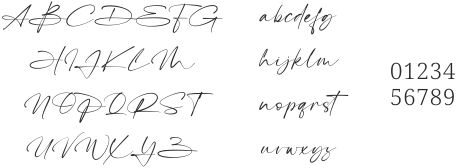 ABCDEFG
HIJKLM
NOPQRST
UVWXYZ
abcdefg
hijklm
nopqrst
uvwxyz
01234
56789